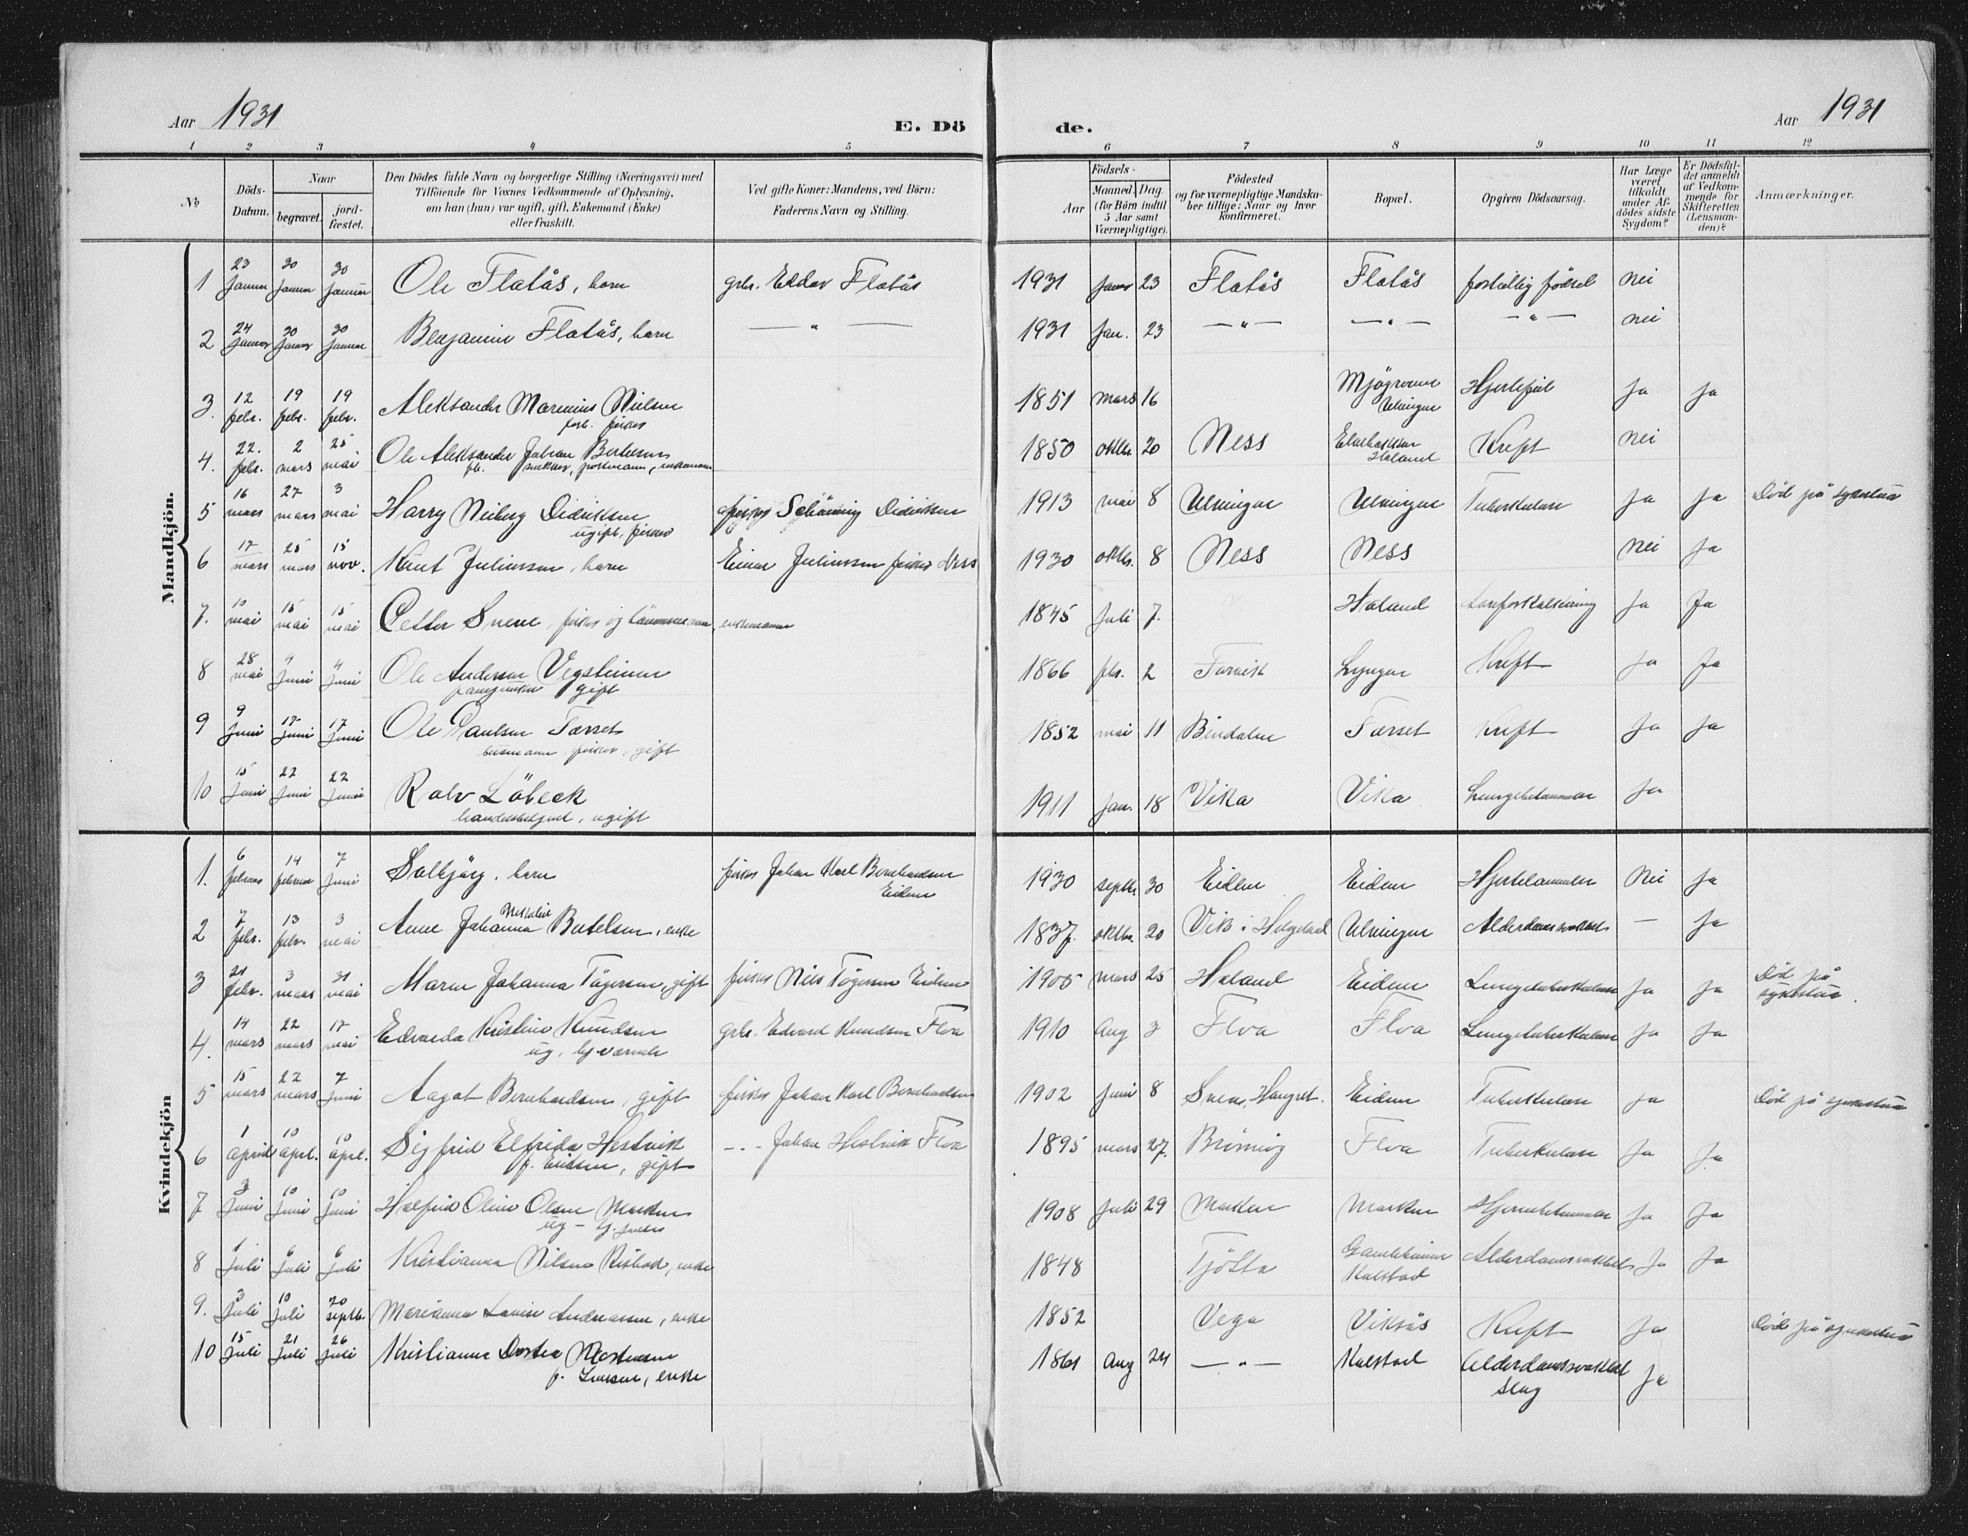 Aar 1931
E. Dö
de.
Aar 1931
1 2 3 4 5
6 7 8 9 10 11 12
No
Döds-
Datum.
Naar
begravet.
jord-
fæstet.
Den Dödes fulde Navn og borgerlige Stilling (Næringsvei) med
Tilföiende for Voxnes Vedkommende af Oplysning,
om han (hun) var ugift, gift, Enkemand (Enke)
eller fraskilt.
Ved gifte Koner: Mandens, ved Börn:
Faderens Navn og Stilling.
Födsels-
Aar
Maaned. Dag.
(for Börn indtil
5 Aar samt
Værnepligtige).
Födested
og for værnepligtige Mandska-
ber tillige: Naar og hvor
konfirmeret.
Bopæl.
Opgiven Dödsaarsag.
Har Læge
været
tilkaldt
under Af-
dödes sidste
Sygdom?
Er Dödsfal-
det anmeldt
af Vedkom-
mende for
Skifteretten
(Lensman-
den)?
Anmærkninger.
Mandkjön.
1 23 januar 30 januar 30 januar Ole Flatås, barn gbr. Eddar Flatås 1931 januar 23 Flatås Flatås fortidlig födsel nei
2 24 januar 30 januar 30 januar Benjamin Flatås, barn — " — 1931 jan. 23 — " — — " — — " — nei
3. 12 febr. 19 febr. 19 febr. Aleksander Marenius Nielsen 1851 mars 16 Ulvingen Hjertefeil ja ja
forh. fisker
4. 22. febr. 2 mars 25 mai Ole Aleksander Johan Bertelsen 1850 oktbr. 20 Ness Haland Kreft nei
snekker, postmann, enkemann
5 16 mars 27 mars 3 mai Harry Neiberg Didriksen fisker Schönning Didriksen 1913 mai 8 Ulvingen Ulvingen Tuberkulose ja ja Död på sykestua
ugift, fisker
6 17 mars 25 mars 15 nov. Knut Juliussen, barn Einar Juliussen fisker Ness 1930 oktbr. 8 Ness Ness nei ja
7. 10 mai 15 mai 15 mai Petter Svene, fisker og tömmermann, enkemann 1845 juli 7. Haland Aareforkalkning ja ja
8 28 mai 4 juni 4 juni Ole Andersen Vegsteinen 1866 febr. 2 Forvik Lyngen Kreft ja ja
gift
9 9 juni 17 juni 17 juni Ole Paulsen Forset 1852 mai 11 Bindalen Forset Kreft ja ja
husmann, fisker, gift
10 15 juni 22 juni 22 juni Rolv Löbeck 1911 jan. 18 Vika Vika Lungebetennelse ja
handelsbetjent, ugift
Kvindekjön
1. 6 februar 14 februar 7 juni Solbjörg, barn fisker Johan Karl Bernhardsen 1930 septbr. 30 Eidem Eidem nei ja
Eidem
2 7 febr. 13 febr. 3 mai Anne Johanna Nikoline Bertelsen, enke 1837. oktbr. 20 Vik i Helgeland Ulvingen Alderdomssvakhet — ja
3 21 febr. 3 mars 31 mai Maren Johanna Tögersen, gift fisker Nils Tögersen Eidem 1905 mars 25 Haland Eidem Lungetuberkulose ja ja Död på
sykestua.
4. 14 mars 22 mars 17 mai Edvarda Kristine Knudsen gbr. Edvard Knudsen Flva 1910 Aug 3 Flva Flva Lungetuberkulose ja ja
ug, hj.værende
5 15 mars 22 mars 7 juni Aagot Bernhardsen, gift fisker Johan Karl Bernhardsen 1902 juni 8 Eidem Tuberkulose ja Död på sykestua
6 1 april 10 april. 10 april. Sigfrid Elfrida Hestvik — " — Johan Hestvik Flva 1895 mars 27. Brönnöy Flva Tuberkulose ja ja
f. Eidsen, gift
7 3 juni 10 juni 10 juni Halfrid Oline Olsen Marken 1908 juli 29 Marken Marken ja ja
8 1 juli 6 juli 6 juli Kristianna Nilsine Ristad, enke 1848 Tjötta Alderdomssvakhet ja ja
Kalstad
9. 3 juli 10 juli 20 septb. Marianna Lovise Andreassen, enke 1852 Vega Viksås Kreft ja Död på sykestua
10 15 juli 21 juli 26 juli Kristianna Dortea Mortensen 1861 Aug 24 — " — Kalstad Alderdomssvakhet ja
f. Larsen, enke slag